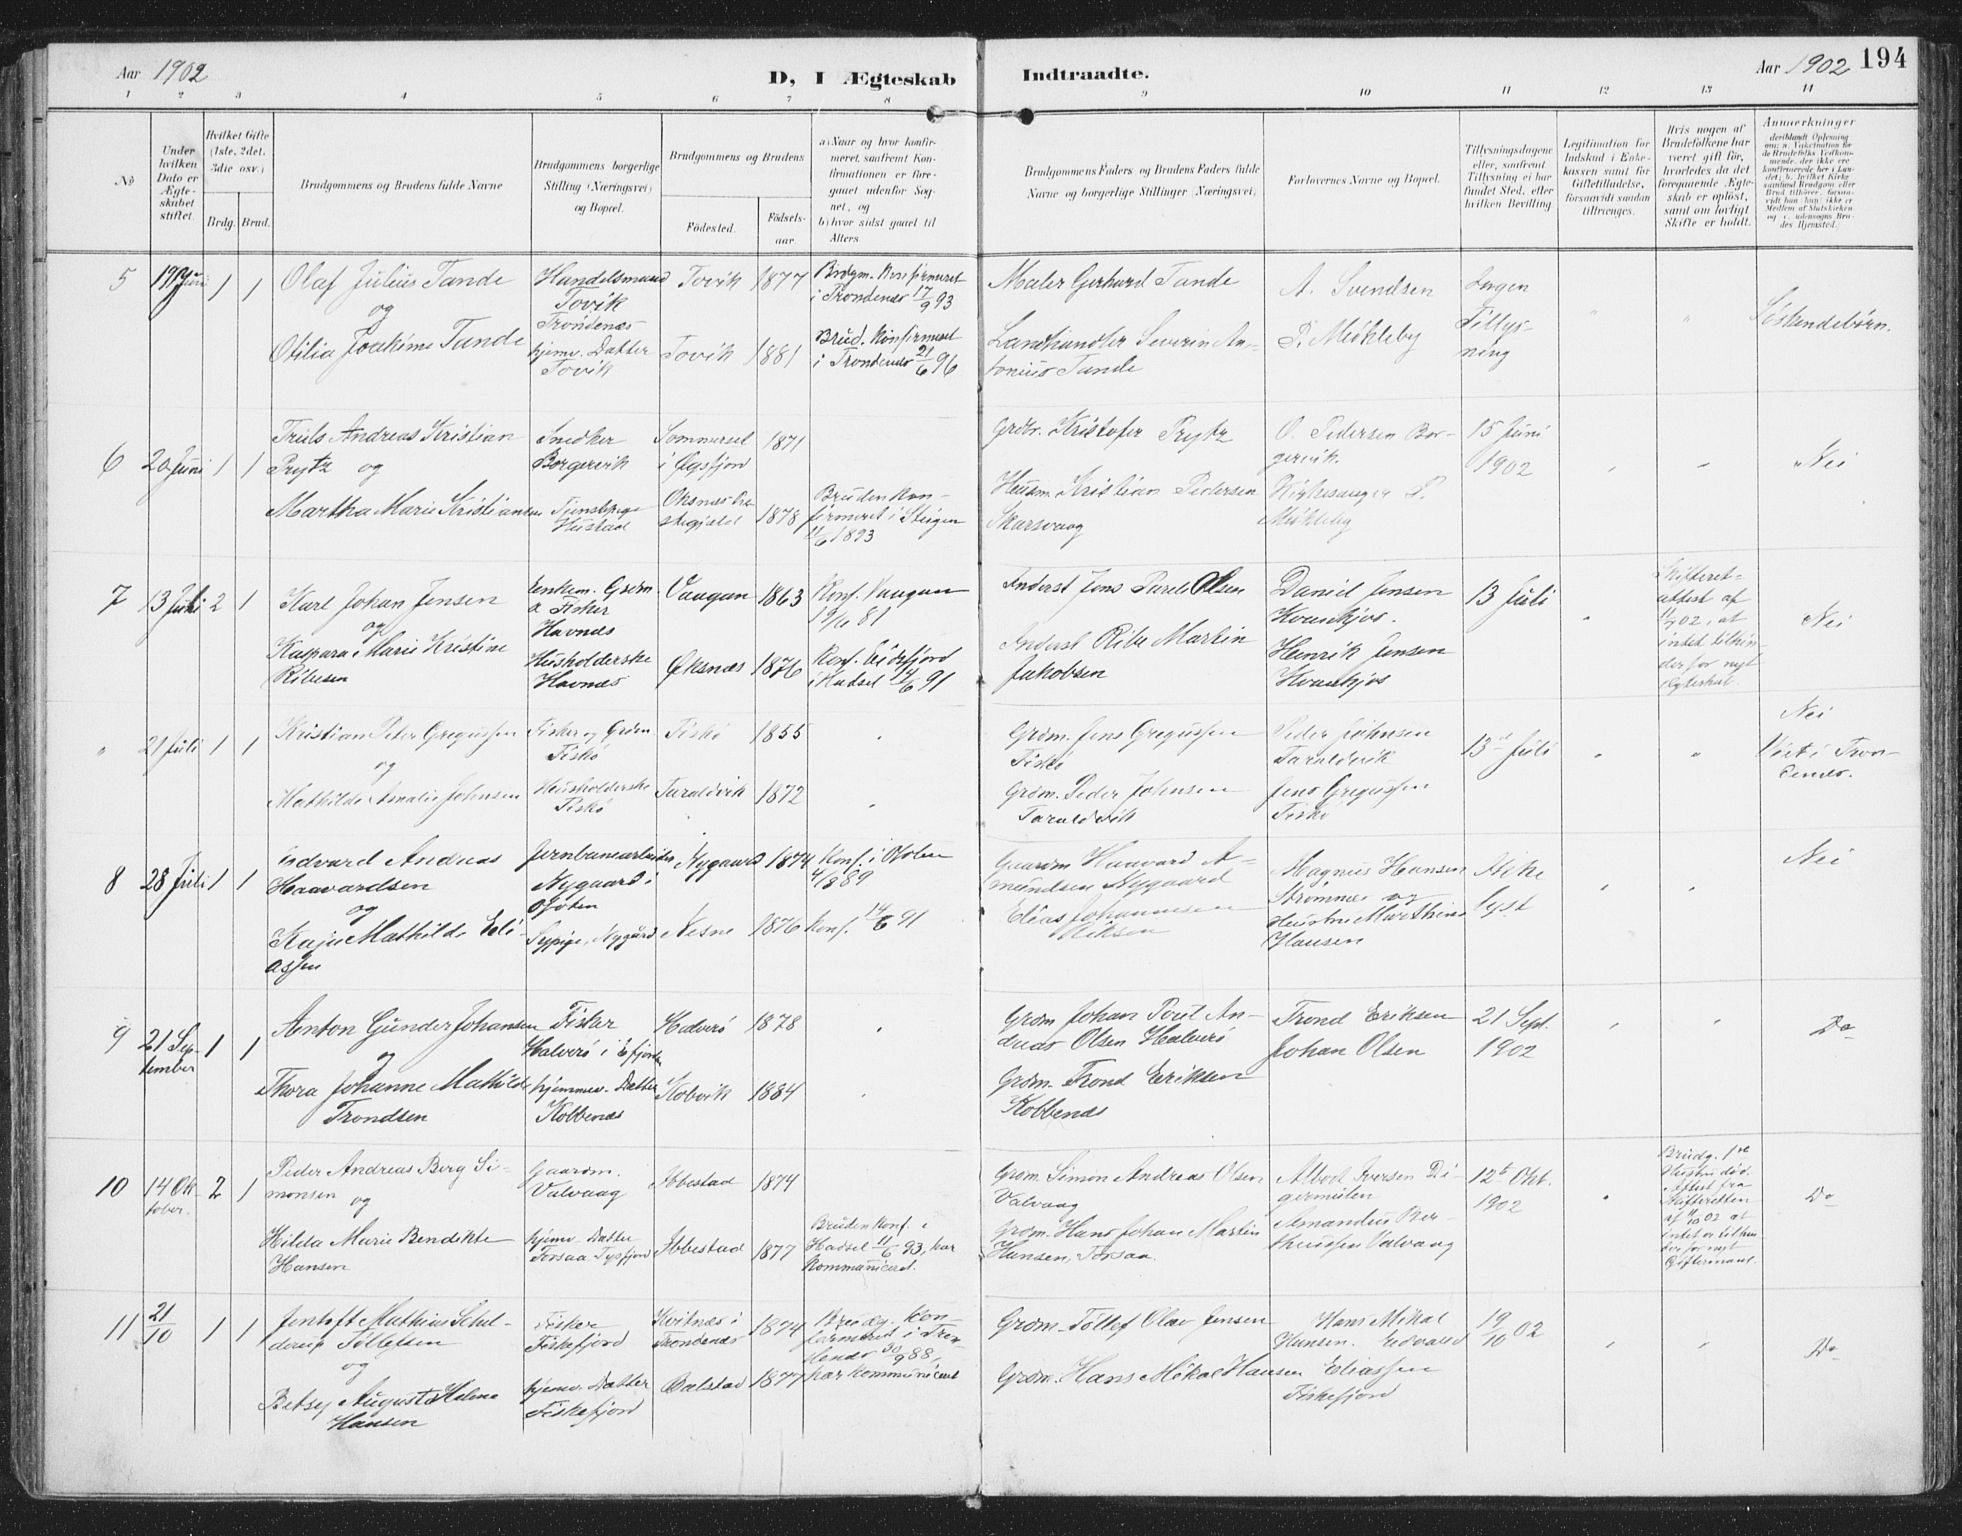 Aar 1902
D, I Ægteskab Indtraadte.
Aar 1902 194
1 2 3 4 5 6 7 8 9 10 11 12 13 14
No
Under hvilken Dato er Ægteskabet stiftet.
Hvilket Gifte (1ste, 2det, 3die osv.)
Brdg. Brud.
Brudgommens og Brudens fulde Navne
Brudgommens borgerlige Stilling (Næringsvei) og Bopæl.
Brudgommens og Brudens
Fødested. Fødselsaar.
a) Naar og hvor konfirmeret, saafremt Konfirmationen er foregaaet udenfor Sognet, og
b) hvor sidst gaaet til Alters
Brudgommens Faders og Brudens Faders fulde Navne og borgerlige Stillinger (Næringsvei).
Forlovernes Navne og Bopæl.
Tillysningsdagene eller, saafremt Tillysning ei har fundet Sted, efter hvilken Bevilling
Legitimation for Indskud i Enkekassen samt for Giftetilladelse, forsaavidt saadan tiltrænges.
Hvis nogen af Brudefolkene har været gift før, hvorledes da det foregaaende Ægteskab er opløst, samt om lovligt Skifte er holdt.
Anmærkninger
5 19 Juni 1 1
Olaf Julius Tande
og
Otilia Joakime Tande
Handelsmand
Tovik
Trondenæs
hjemv. Datter
Tovik
Tovik 1877
Tovik 1881
Brdgm. Konfirmeret
i Trondenæs 17/9 93
Brud. Konfirmeret
i Trondenæs 21/6 96
Maler Gerhard Tande
Landhandler Severin An-
tonius Tande
A. Svendsen
P. Mökleby
Ingen
Tillys-
ning
Söskendebörn.
6 20 Juni 1 1
Truls Andreas Kristian
Prytz og
Martha Marie Kristiansen
Snedker
Borgervik
Tjenstpige
Hustad
Sommersel
i Øgsfjord
Øksnæs Præ
stegjeld
1871
1878
Bruden Kon-
firmeret i Steigen
11/6 1893
Grdbr. Kristofer Prytz
Husm. Kristian Pedersen
Skarsvaag
O. Pedersen Bor-
gervik.
Kirkesanger P.
Mökleby
15 Juni
1902
Nei
7 13 Juli 2 1
Karl Johan Jensen
og
Kaspara Marie Kristine
Ribesen
Enkem. Grdm.
& Fisker
Havnæs
Husholderske
Havnæs
Vaagan 1863
Øksnæs 1876
Konf. Vaagan
19/6 81
Konf. Eidsfjord
i Hadsel 14/6 91
Inderst Jens Parel Olsen
Inderst Ribe Martin
Jakobsen
Daniel Jensen
Kvankjos.
Henrik Jensen
Kvankjos
13 Juli
Skifteret-
attest af
11/7 02, at
intet tilhin-
der for nyt
Ægteskab.
Nei
" 21 Juli 1 1
Kristian Peter Gregussen
og
Mathilde Amalie Johnsen
Fisker og Grdm.
Fiskö
Husholderske
Fiskö
Fiskö 1855
Taraldvik 1872
Grdm. Jens Gregussen
Fiskö
Grdm. Peder Johnsen
Taraldvik
Peder Johnsen
Taraldvik
Jens Gregussen
Fiskö
13de Juli
Nei
Viet i Tron-
denæs.
8 28 Juli 1 1
Edvard Andreas
Haavardsen
og
Kaja Mathilde Eli-
assen
Jernbanearbeider
Nygaard i
Ofoten
Sypige, Nygård
Nygaard 1874
Nesne 1876
Konf. i Ofoten
4/8 89
Konf. 14/6 91
Gaardm Haavard A-
mundsen Nygaard
Elias Johannesen
Magnus Hansen
Strømnes og
Hustru Marthine
Hansen
Ikke
lyst
Nei
9 21 Sep-
tember 1 1
Anton Gunder Johansen
og
Thora Johanne Mathilde
Trondsen
Fisker
Halverö i Efjorden
hjemmev. Datter
Kobbenæs
Halverö 1878
Kobvik 1884
Grdm Johan Peret An-
dreas Olsen Halverö
Grdm. Trond Eriksen
Kobbenæs
Trond Eriksen
Johan Olsen
21 Sept.
1902
Do
10 14 Ok-
tober. 2 1
Peder Andreas Berg Si-
monsen og
Hilda Marie Bendikte
Hansen
Gaardm.
Valvaag
hjemv. Datter
Torsaa Tysfjord
Ibbestad 1874
Ibbestad 1877
Bruden Konf. i
Hadsel 11/6 93, har
kommuniceret.
Grdm Simon Andreas Olsen
Valvaag
Grdm. Hans Johan Martin
Hansen, Torsaa.
Albert Iversen Di-
germulen
Amandus Ber-
theussen Valvaag
12te Okt.
1902
Brudg. 1ste
Hustru död.
Attest fra
Skifteretten
af 9/10 02 at
intet er tilhin
der for nyt
Giftermaal.
Do
11 21/10 1 1
Jentoft Mathias Schel-
derup Tollefsen
og
Betsy Augusta Helene
Hansen
Fisker
Fiskefjord
hjemv. Datter
Fiskefjord
Kvitnæs i
Trondenæs
Balstad
1874
1877
Brudg. Kon-
firmeret i Tron-
denæs 30/9 88,
har kommuniceret
Grdm. Tollef Olav Jensen
Grdm. Hans Mikal Hansen
Hans Mikal
Hansen. Edvard
Eliassen
Fiskefjord
19/10 02
Do